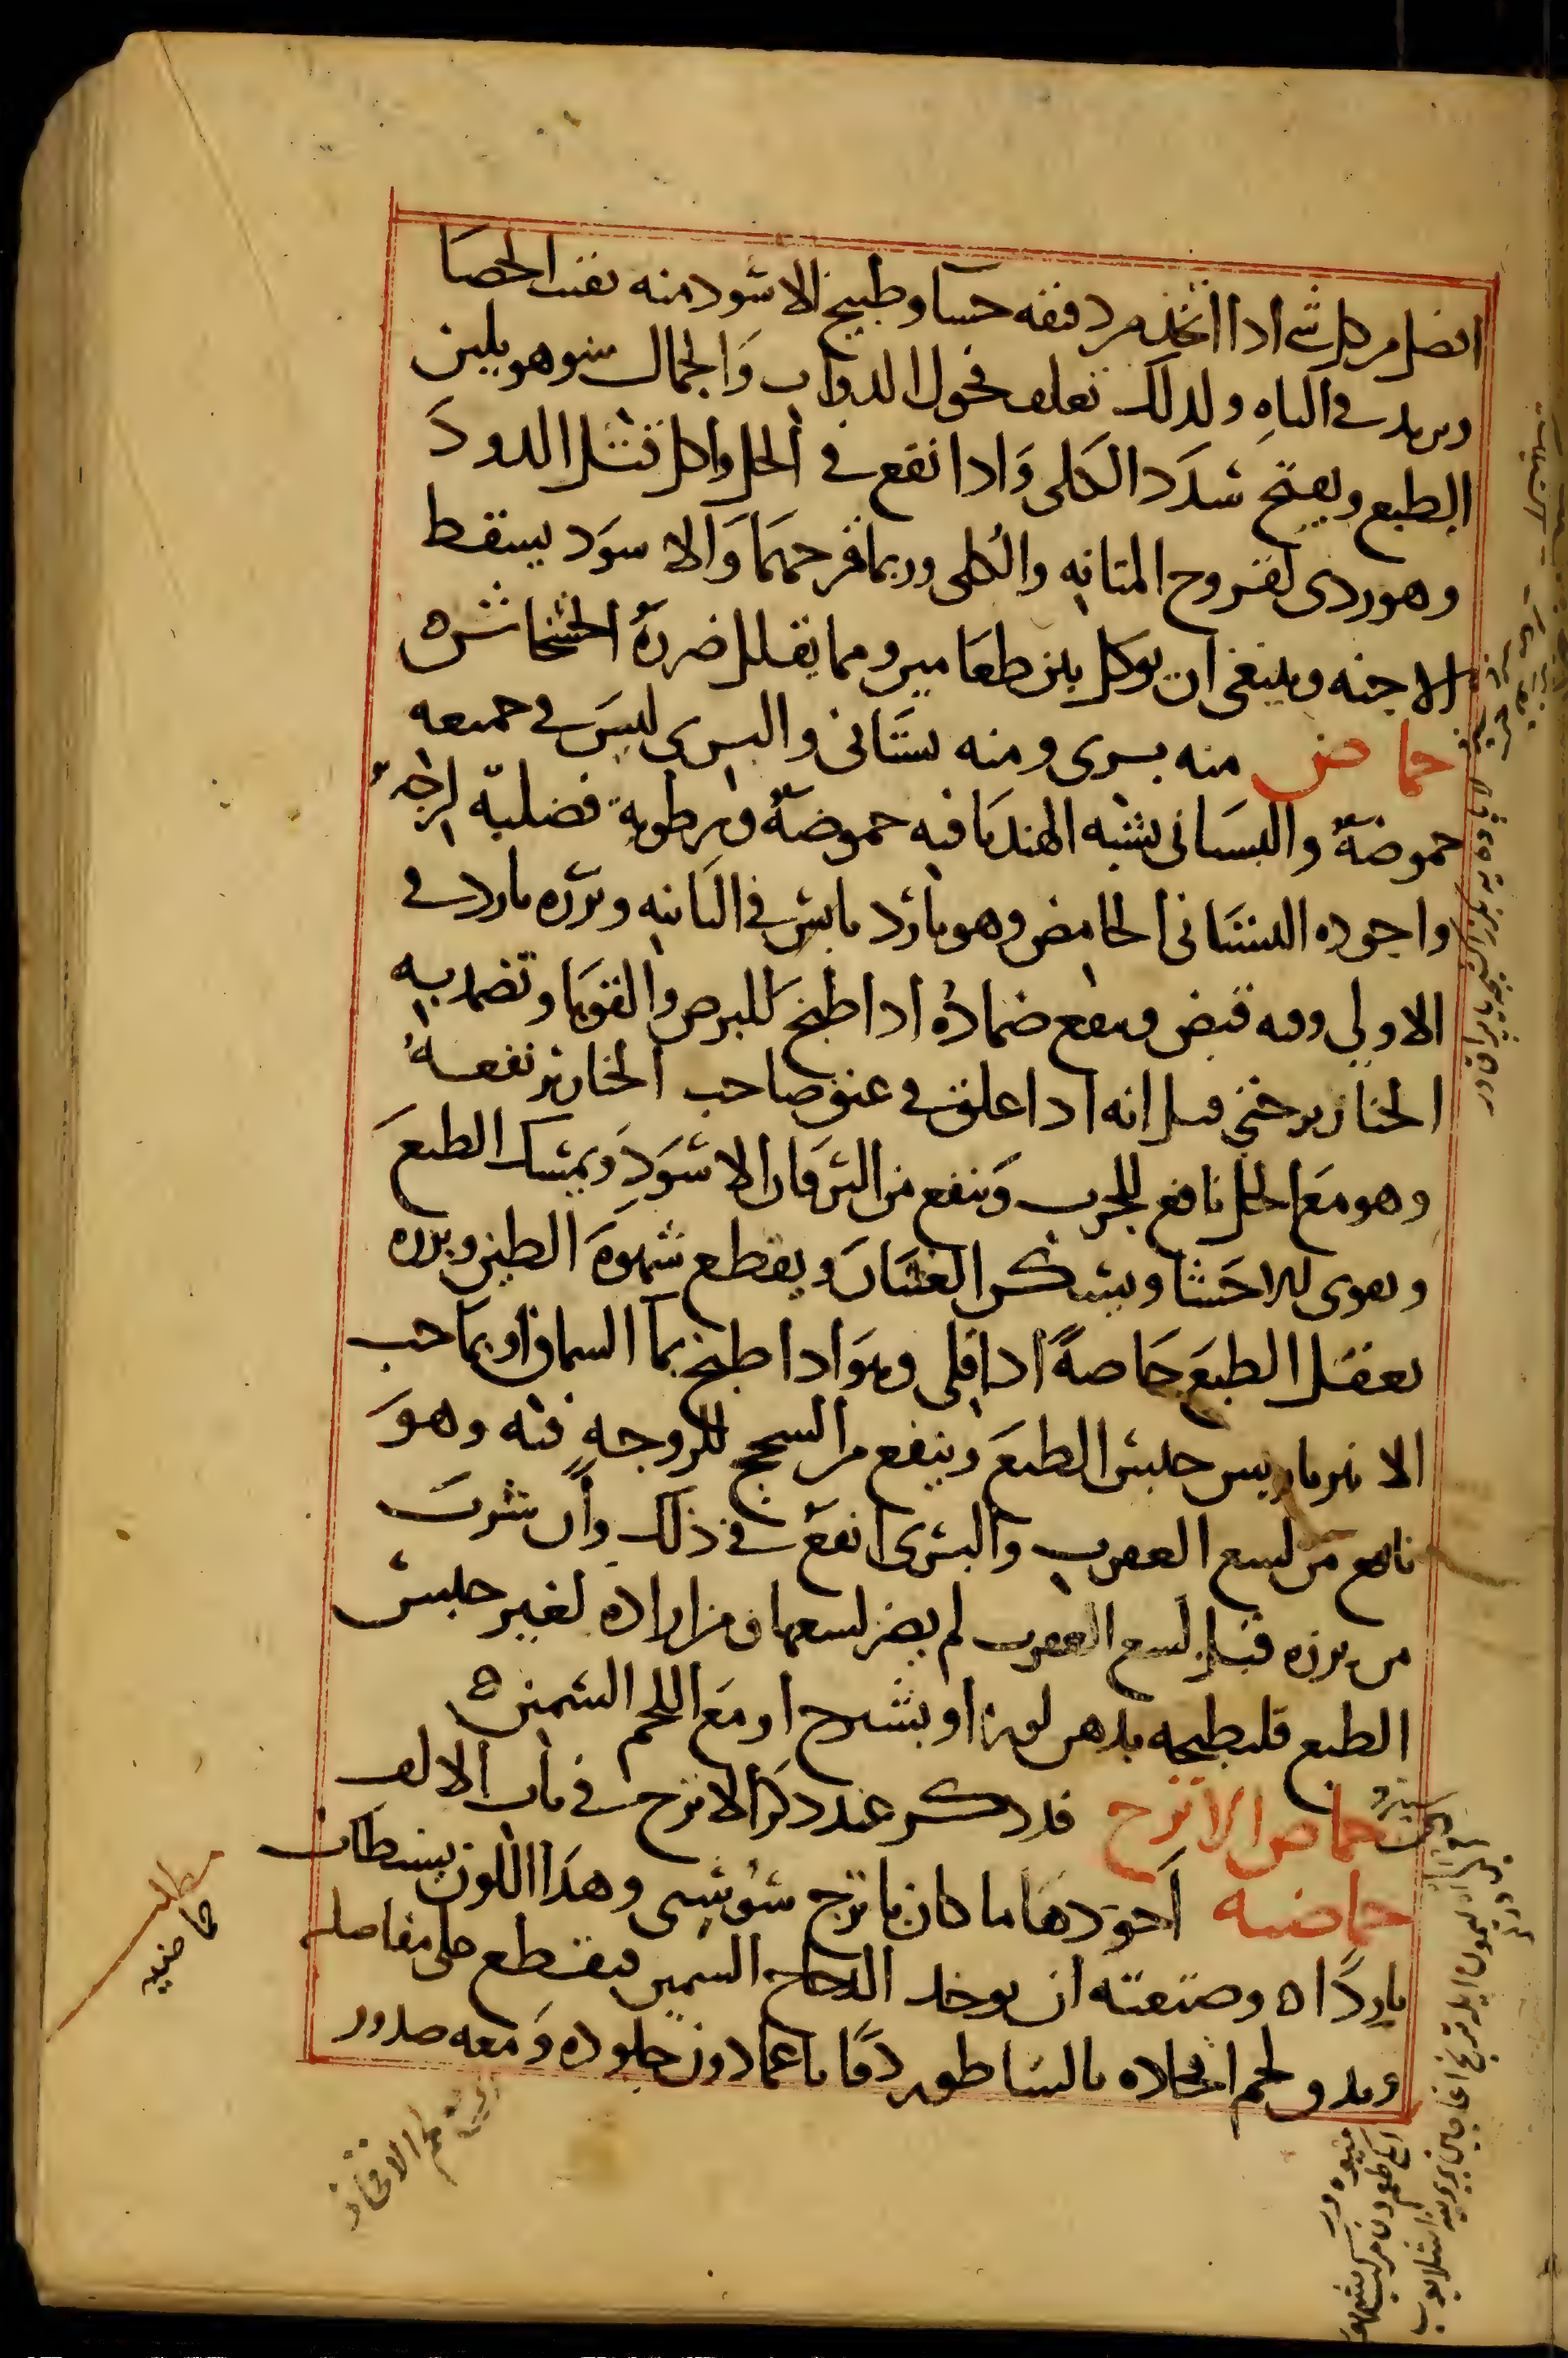 افضل من كل شى اذا اتخذ من دقيقه حسا وطبيخ الاسود منه يفتت الحصا
ويزيد فى الباه ولذلك تعلف فحول الدواب والجمال وهو يلين
الطبع ويفتح سدد الكلى واذا نقع فى الخل واكل قتل الدود
وهو ردى لقروح المثانه والكلى وربما قرحهما والاسود يسقط
الاجنه وينبغى ان يوكل بين طعامين ومما يقلل ضرره الخشخاش ه
حماض منه برى ومنه بستانى والبرى ليس فى جميعه
حموضة والبستانى يشبه الهندبا فيه حموضة ورطوبة فضلية لزجة
واجوده البستانى الحامض وهو بارد يابس فى الثانيه وبزره بارد فى
الاولى وفيه قبض وينفع ضماده اذا طبخ للبرص والقوبا وتضمد به
الخنازير حتى قيل انه اذا علق فى عنق صاحب الخنازير نفعه
وهو مع الخل نافع للجرب وينفع من اليرقان الاسود ويمسك الطبع
ويقوى الاحشا ويسكن الغثيان ويقطع شهوة الطين وبزره
يعقل الطبع خاصة اذا قلى وهو اذا طبخ بما السماق او بما حب
الانبرباريس حبس الطبع وينفع من السحج للزوجه فيه وهو
نافع من لسع العقرب والبرى انفع فى ذلك وان شرب
من بزره قبل لسع العقرب لم يضر لسعها ومن اراده لغير حبس
الطبع فليطبخه بدهن لوز او بشيرج او مع اللحم السمين ه
حماض الاترج قد ذكر عند ذكر الاترج فى باب الالف
حماضيه اجودها ما كان باترج سوسى وهذا اللون يستطاب
باردا ه وصنعته ان يوخذ الدجاج السمين فيقطع على مفاصله
ويدق لحم افخاذه بالساطور دقا ناعما دون جلوده ومعه صدور
مطلب
حماضيه
لحم الافخاذ